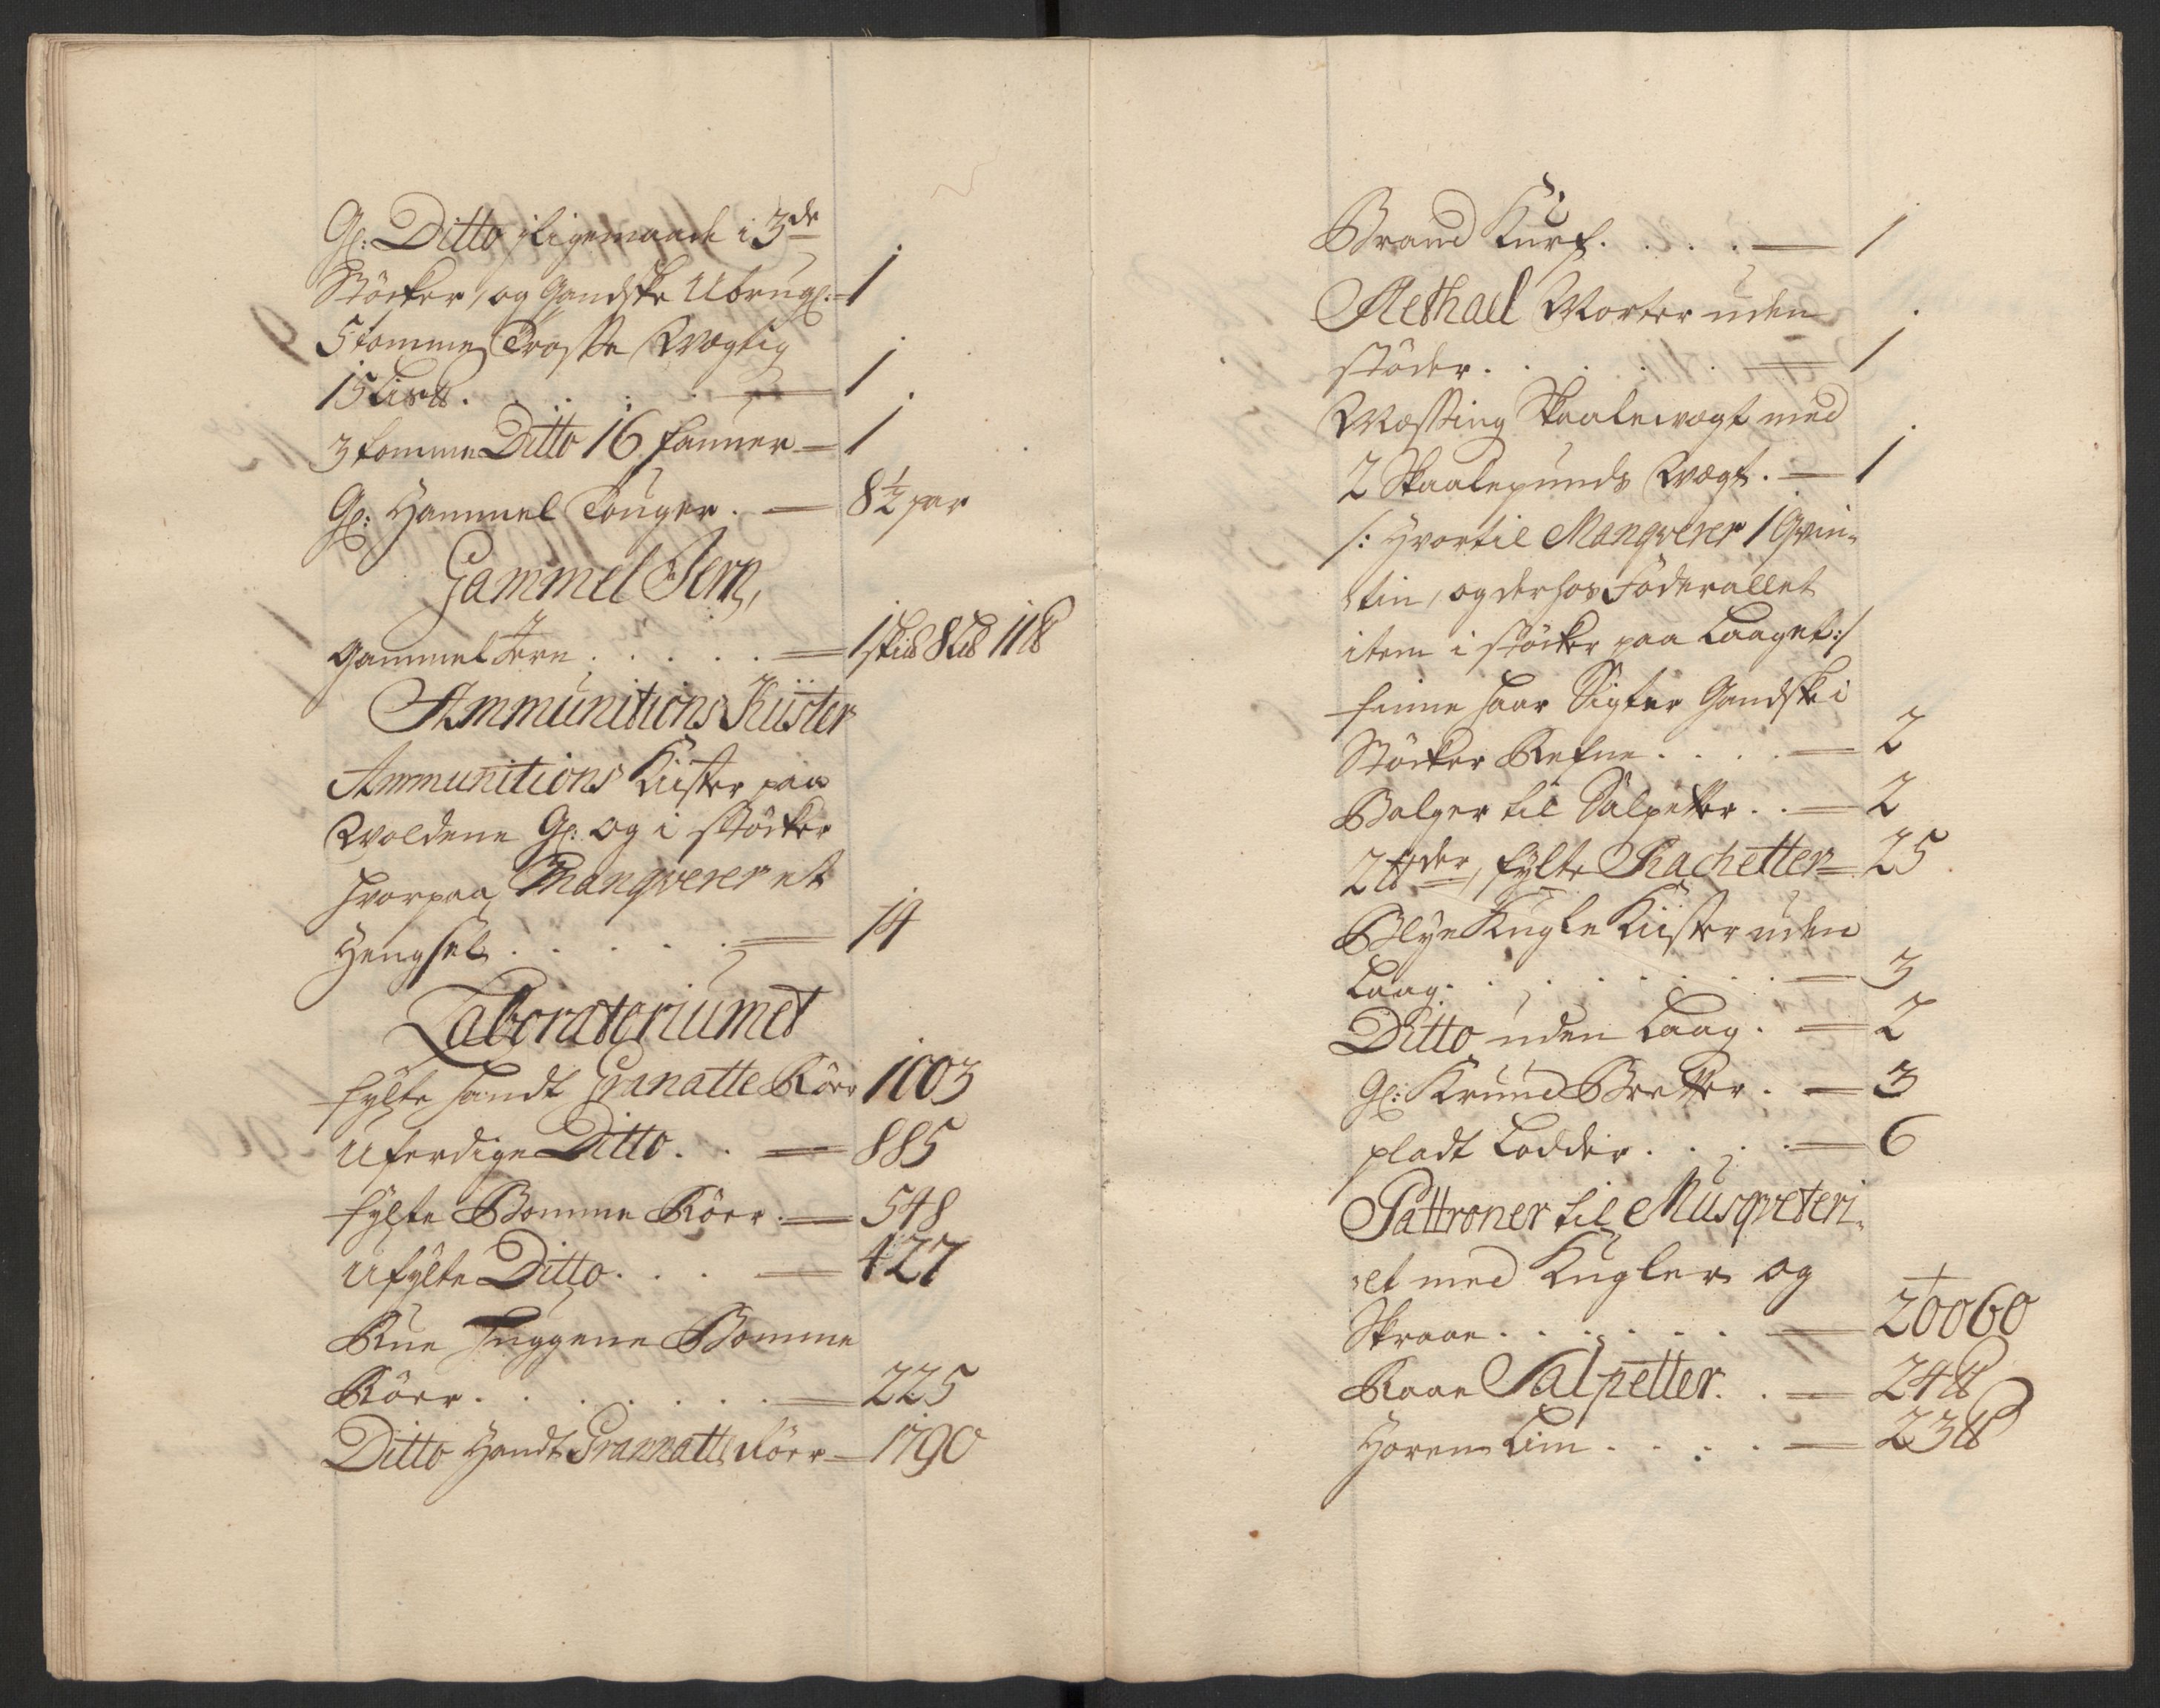 Gl: Ditto iligemaade i 3de
Støcker, og Gandske Ubrugl: 1
5 tomme Trosse Wægtig
15 Lis℔ . . . . . 1
3 tomme Ditto 16 fauner 1
Gl: Hammel Touger . 8½ par
Gammel Jern,
Gammel Jern . . . . . 1 ski℔ 8 L℔ 11 ℔
Ammunitions Kiister
Ammunitions Kiister paa
Woldene Gl: og i støcker
hvorpaa Manqverer et
Hengsel . . . . . 14
Laboratoriumet
fylte Handt Granatte Rörr 1003
Uferdige Ditto . . 885
fylte Bomme Rörr . 548
Ufylte Ditto . . . 427
Rue huggene Bomme
Rörr . . . . . . 225
Ditto Handt Grannatte Rörr 1790
Brand Kurf . . . . 1
Methael Morter uden
stöder . . . . . 1
Messing Skaalevægt med
2 Skaalepunds Wægt . 1
/: Hvortil Manqverer 1 Qvin-
tin, og derhos Foderallet
item i støcker paa Laaget :/
finne Haar Sigter Gandske i
Støcker Refne . . . . 2
Balger til Salpetter . . 2
2 ℔der, fylte Rachetter 25
Blye Kugle Kiister uden
Laag . . . . . . . 3
Ditto uden Laag . 2
Gl: Krund Bretter . 3
pladt Lodder . . . . 6
Pattroner til Musqveteri-
et med Kugler og
Skraae . . . . . . 20060
Raae Salpetter . . 24 ℔
Horen Lim . . . . 23 ℔